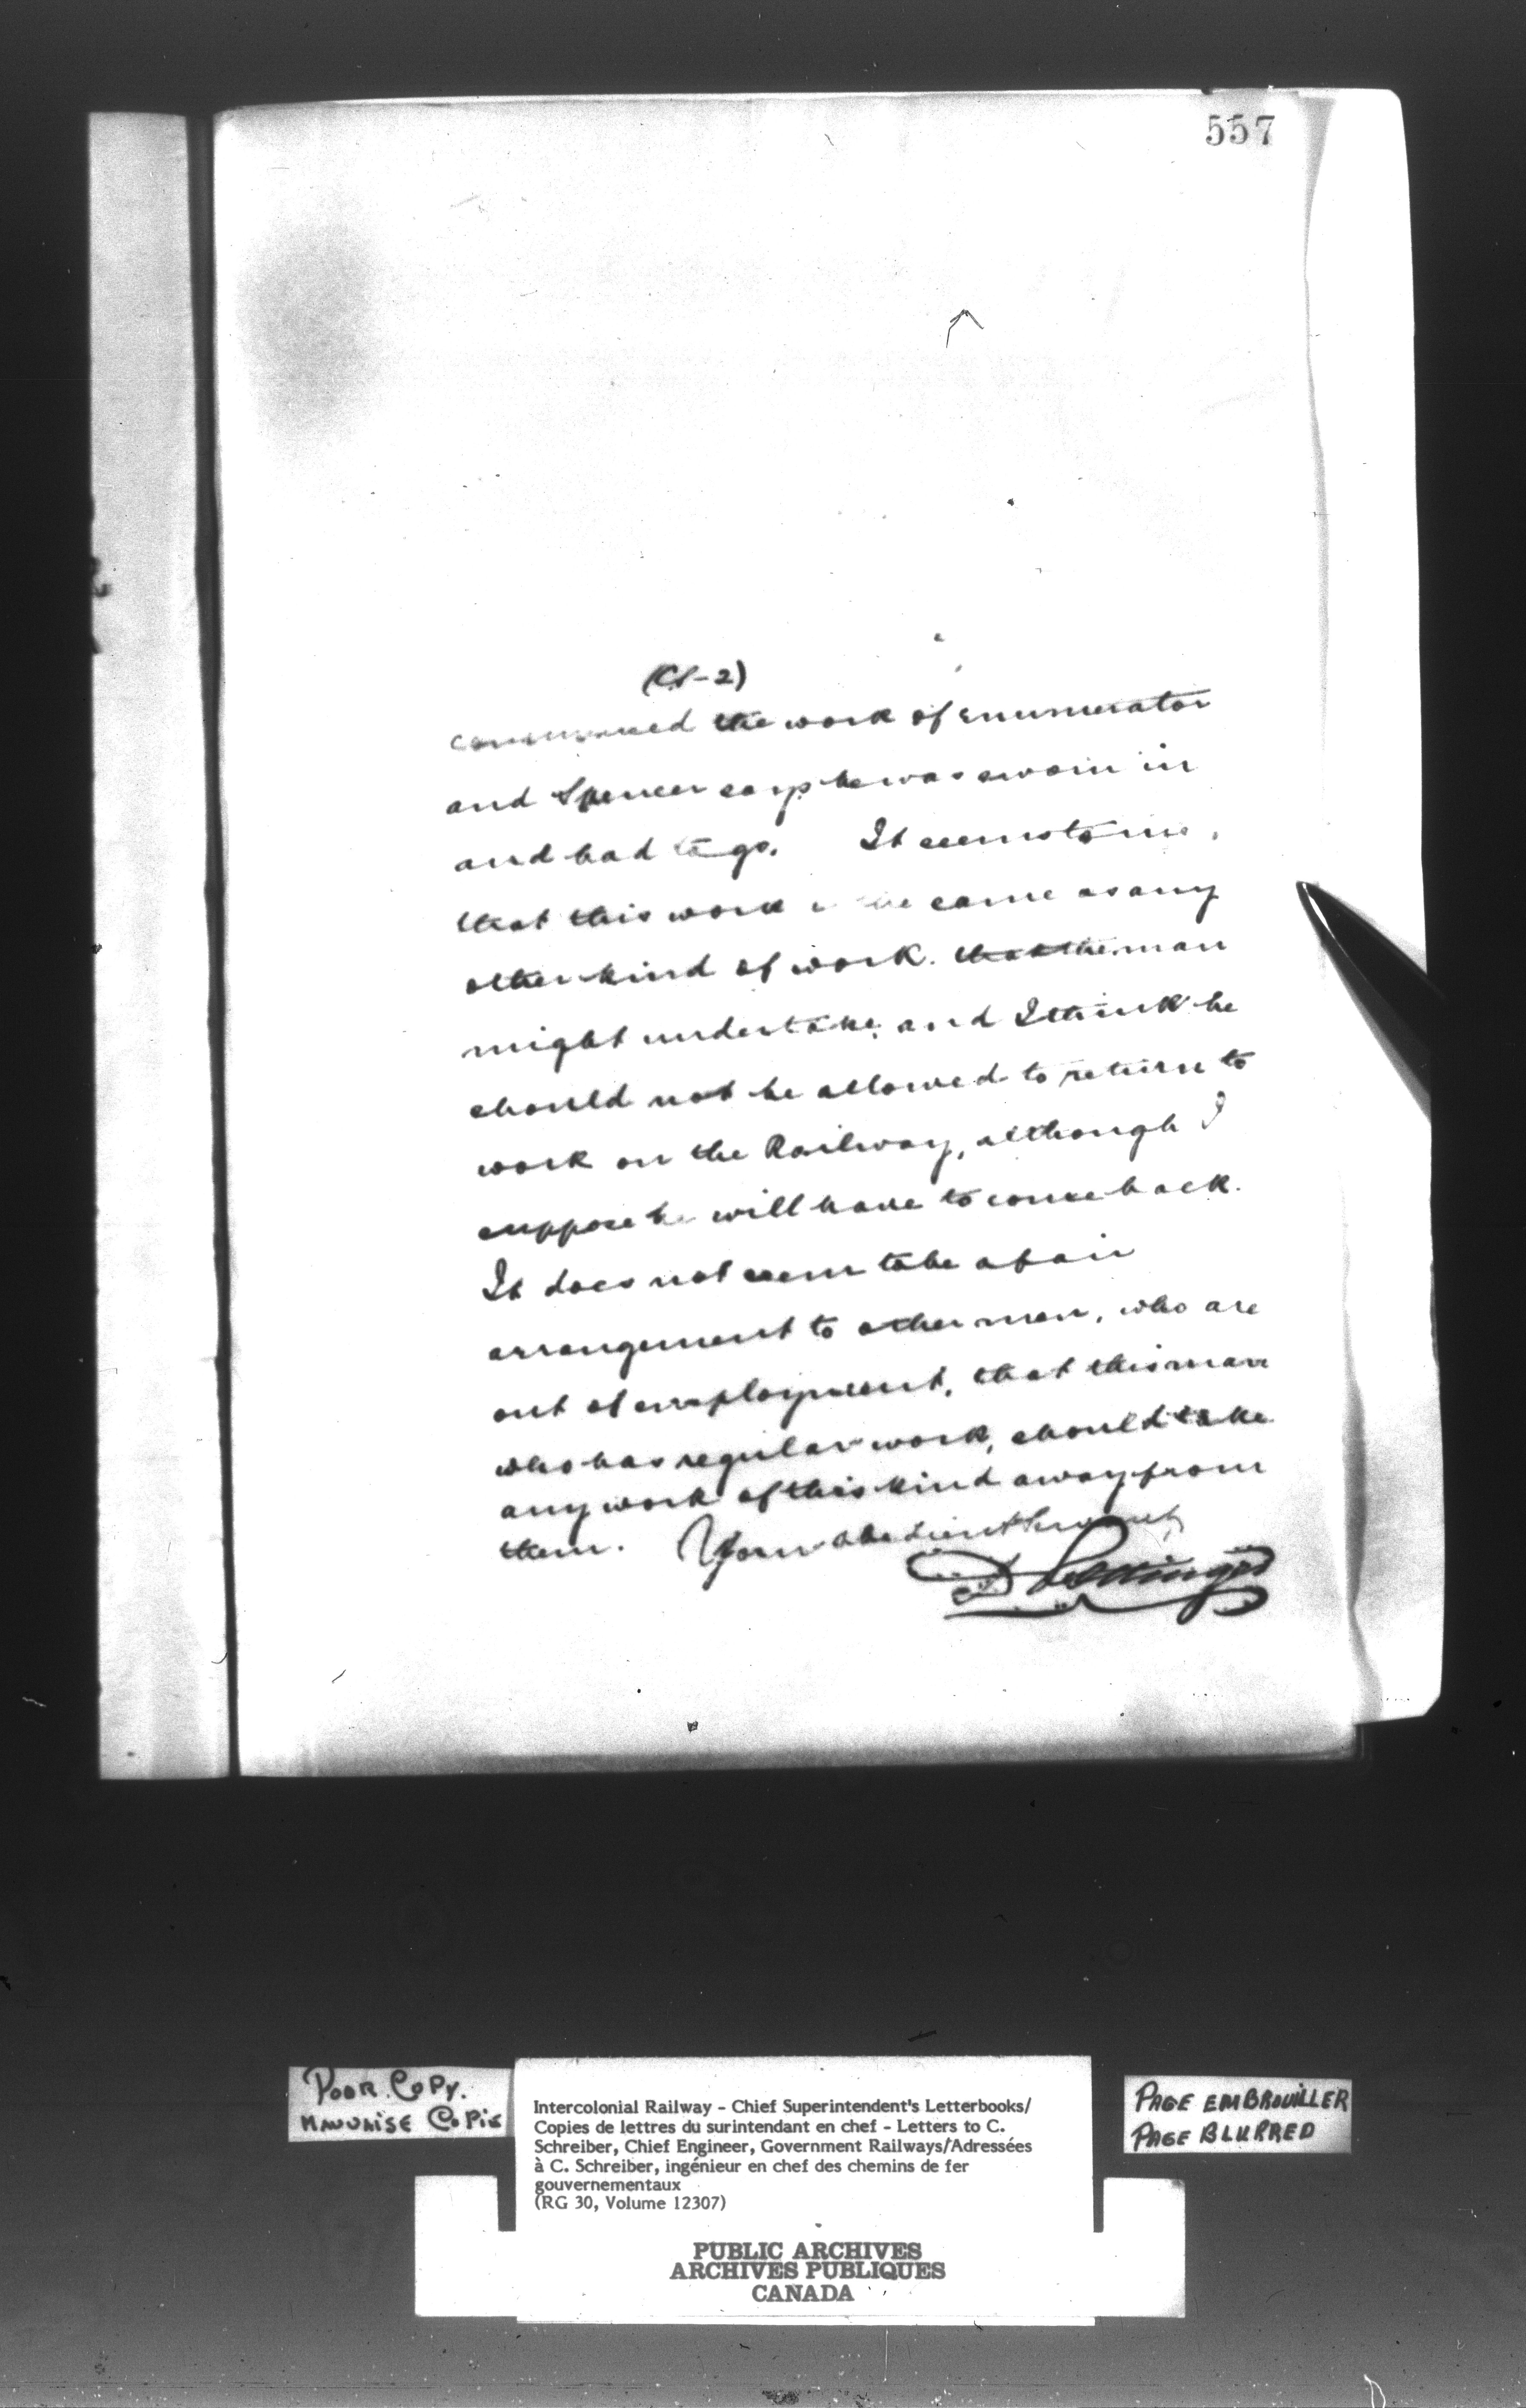 557
(CS-2)
commenced the work of enumerator
and Spencer says he was sworn in
and had to go. It seems to me,
that this work is the same as any
other kind of work. that the man
might undertake, and I think he
should not be allowed to return to
work on the Railway, although I
suppose he will have to come back.
It does not seem to be a fair
arrangement to other men, who are
out of employment, that this man
who has regular work, should take
any work of this kind away from
them. Your obedient Servant
D Pottinger
POOR COPY.
MAUVAISE COPIE
Intercolonial Railway - Chief Superintendent's Letterbooks/
Copies de lettres du surintendant en chef - Letters to C.
Schreiber, Chief Engineer, Government Railways/Adressées
à C. Schreiber, ingénieur en chef des chemins de fer
gouvernementaux
(RG 30, Volume 12307)
PAGE EMBROUILLER
PAGE BLURRED
PUBLIC ARCHIVES
ARCHIVES PUBLIQUES
CANADA